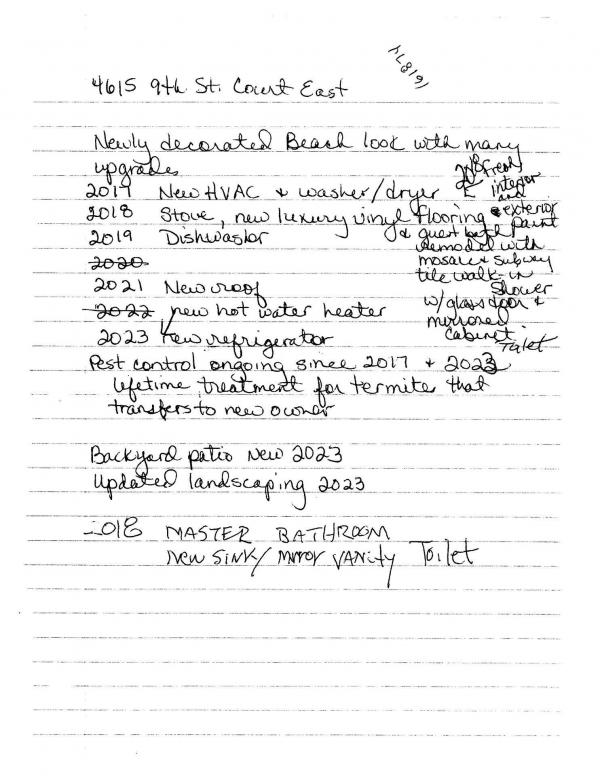 4615 9th St. Court East
Newly decorated Beach look with many
upgrades
2017 New HVAC & washer/dryer
2018 Stove, new luxury vinyl flooring
Fresh
interior
and
exterior
paint
2019 Dishwasher
& guest bath
remodel with
mosaic & subway
tile walk-in
Shower
w/glass door &
mirrored
Cabinet
Toilet
2020
2021 New roof
2022 new hot water heater
2023 New refrigerator
Pest control ongoing since 2017 & 2023
lifetime treatment for termite that
transfers to new owner
Backyard patio New 2023
Updated landscaping 2023
2018 MASTER BATHROOM
NEW SINK/MIRROR VANITY Toilet